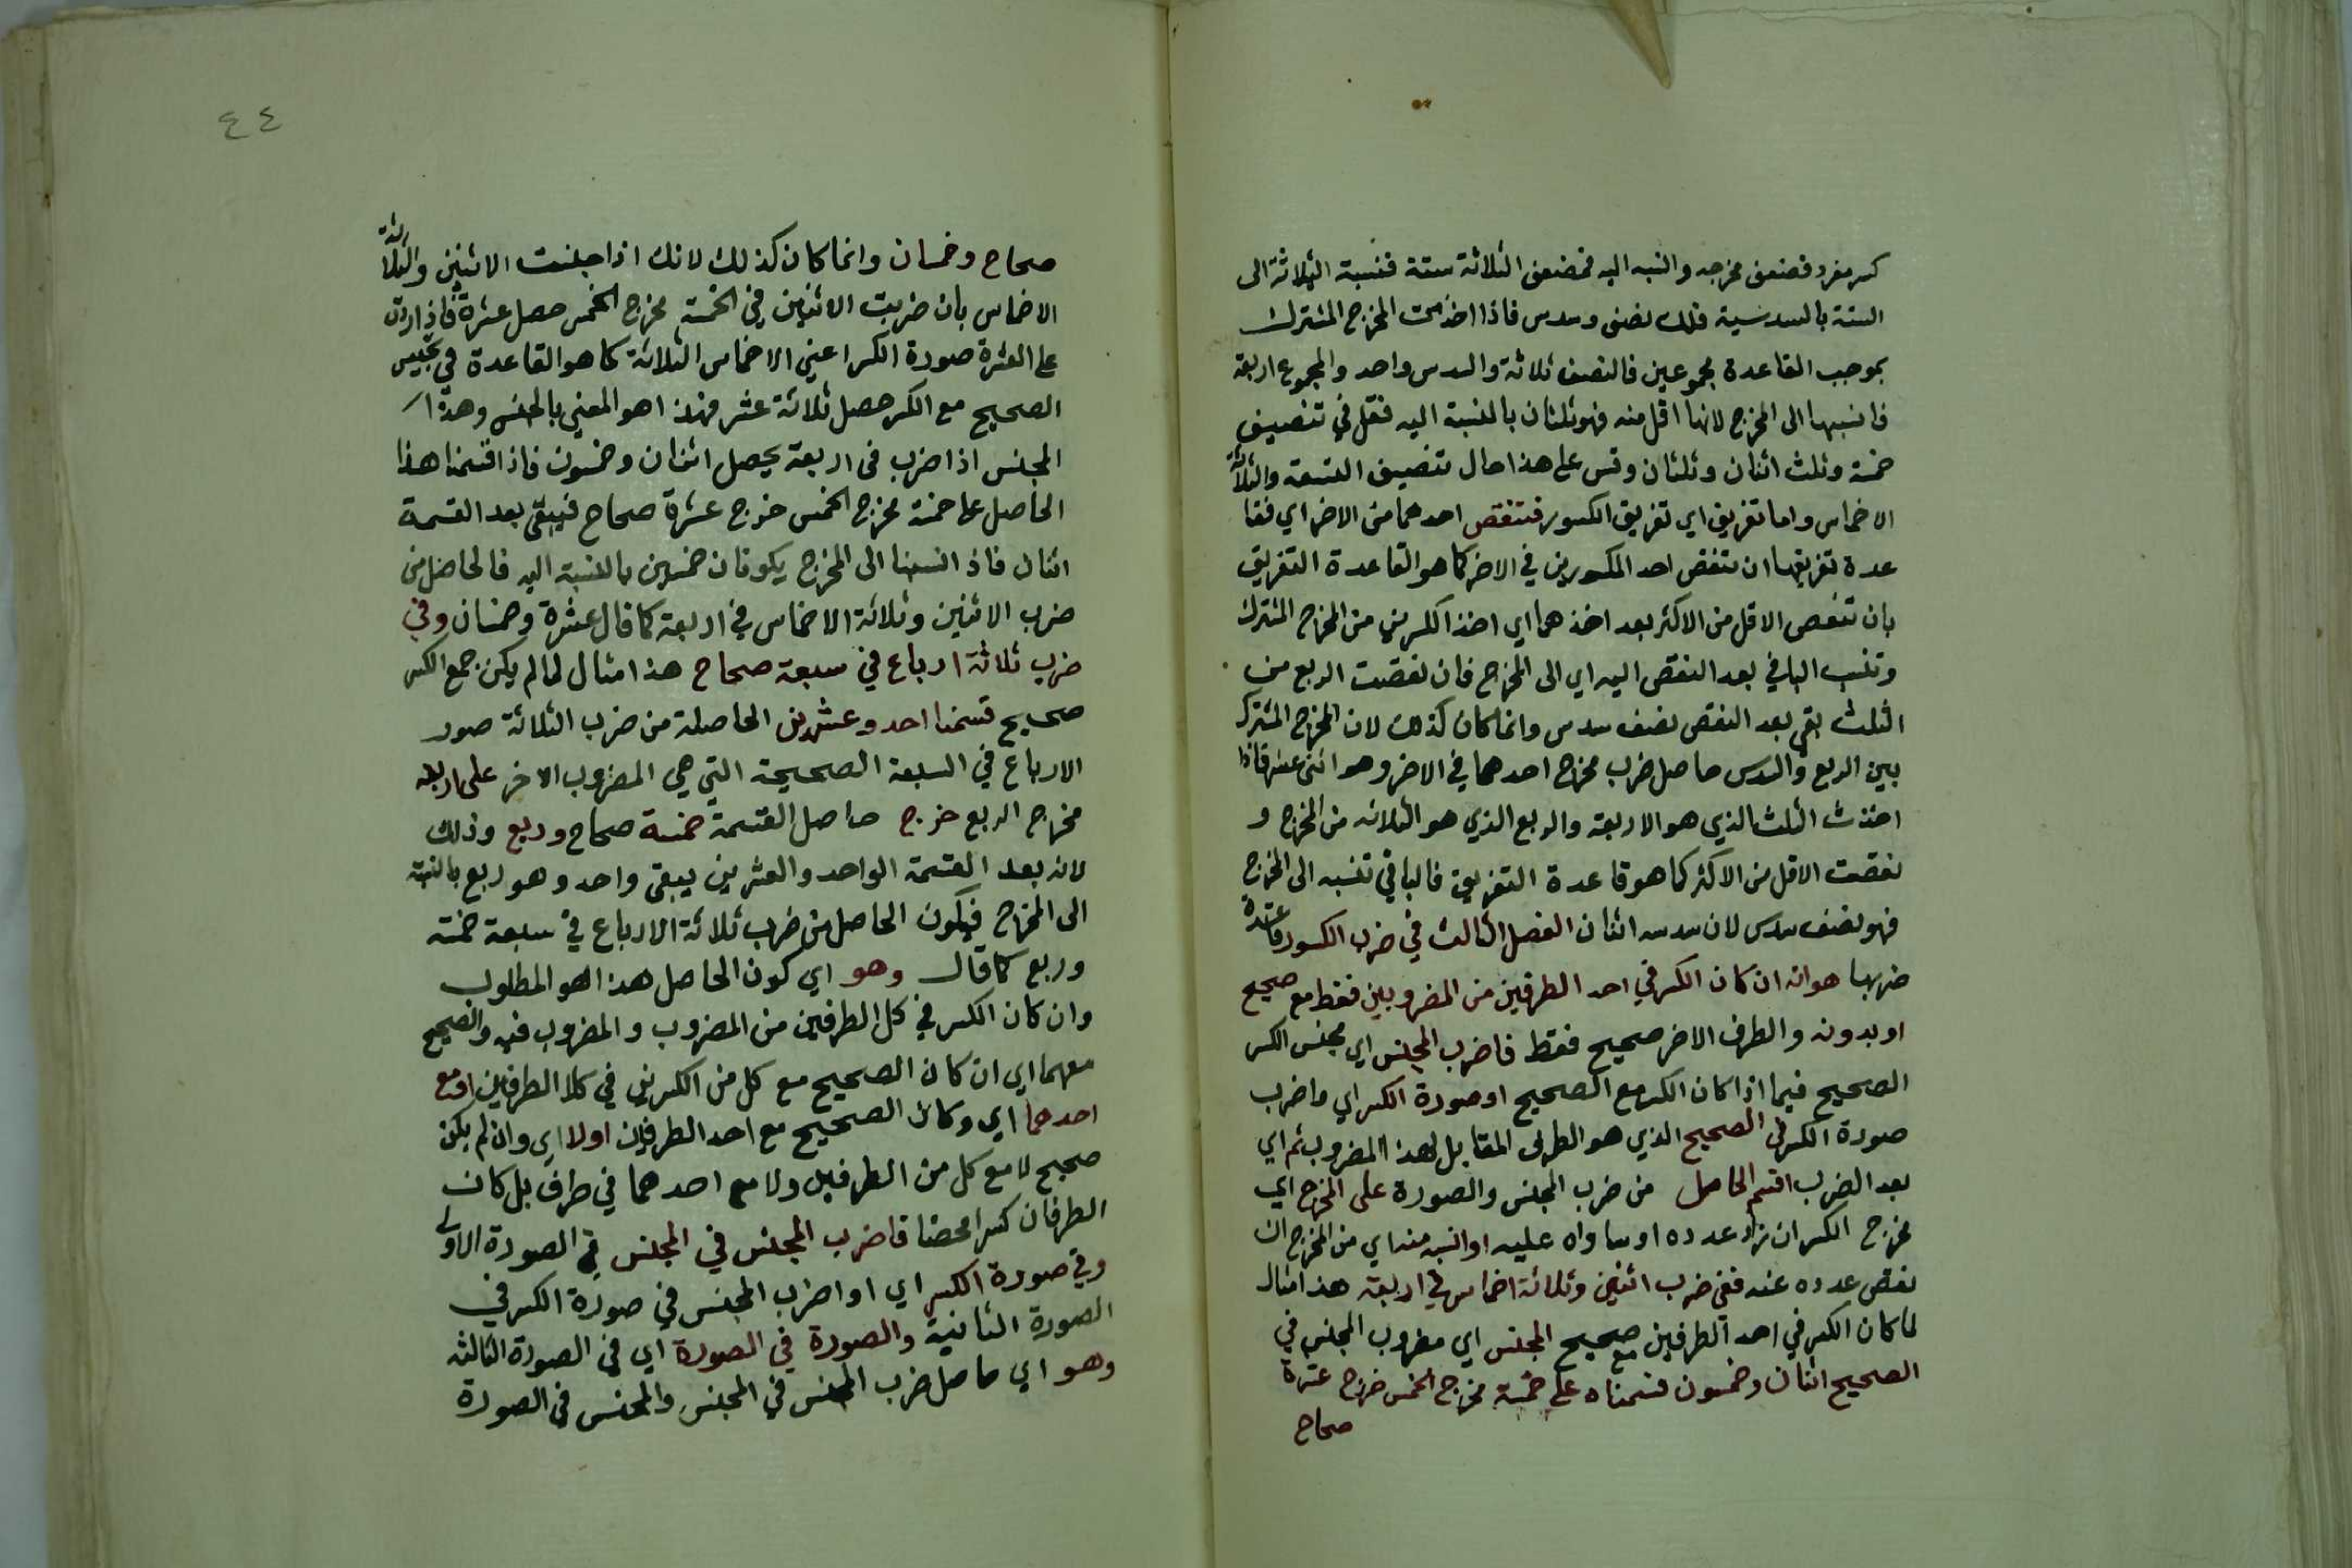 كسر مفرد فضعف مخرجه وانسبه اليه فضعف الثلاثة ستة فنسبة الثلاثة الى
الستة بالسدسية فلك نصف وسدس فاذا اخذت المخرج المشترك
بموجب القاعدة مجموعين فالنصف ثلاثة والسدس واحد والمجموع اربعة
فانسبها الى المخرج لانها اقل منه فهو ثلثان بالنسبة اليه فقل في تنصيف
خمسة وثلث اثنان وثلثان وقس على هذا حال تنصيف التسعة والثلاثة
الاخماس واما تفريق اي تفريق الكسور فتنقص احدهما من الاخر اي فقا
عدة تفريقها ان تنقص احد الكسورين في الاخر كما هو القاعدة التفريق
بان تنقص الاقل من الاكثر بعد اخذهما اي اخذ الكسرين من المخرج المشترك
وتنسب الباقي بعد النقص اليه اي الى المخرج فان نقصت الربع من
الثلث بقي بعد النقص نصف سدس وانما كان كذلك لان المخرج المشترك
بين الربع والسدس حاصل ضرب مخرج احدهما في الاخر وهو اثنى عشر فاذا
اخذت الثلث الذي هو الاربعة والربع الذي هو الثلاثة من المخرج و
نقصت الاقل من الاكثر كما هو قاعدة التفريق فالباقي تنسبه الى المخرج
فهو نصف سدس لان سدسه اثنان الفصل الثالث في ضرب الكسور قاعدة
ضربها هو انه ان كان الكسر في احد الطرفين من المضروبين فقط مع صحيح
او بدونه والطرف الاخر صحيح فقط فاضرب المجنس اي مجنس الكسر
الصحيح فيما اذا كان الكسر مع الصحيح او صورة الكسر اي واضرب
صورة الكسر في الصحيح الذي هو الطرف المقابل لهذا المضروب ثم اي
بعد الضرب اقسم الحاصل من ضرب المجنس والصورة على المخرج اي
مخرج الكسر ان زاد عدده او ساواه عليه او انسبه منه اي من المخرج ان
نقص عدده عنه ففي ضرب اثنين وثلاثة اخماس في اربعة هذا مثال
لما كان الكسر في احد الطرفين مع صحيح المجنس اي مضروب المجنس في
الصحيح اثنان وخمسون قسمناه على خمسة مخرج الخمس خرج عشرة
صحاح
٤٤
صحاح وخمسان وانما كان كذلك لانك اذا جنست الاثنين والثلاثة
الاخماس بان ضربت الاثنين في الخمسة مخرج الخمس حصل عشرة فاذا زدت
على العشرة صورة الكسر اعني الاخماس الثلاثة كما هو القاعدة في تجنيس
الصحيح مع الكسر حصل ثلاثة عشر فهذا هو المعني بالمجنس وهذا
المجنس اذا ضرب في اربعة يحصل اثنان وخمسون فاذا قسمنا هذا
الحاصل على خمسة مخرج الخمس خرج عشرة صحاح فيبقى بعد القسمة
اثنان فاذا نسبنا الى المخرج يكونان خمسين بالنسبة اليه فالحاصل من
ضرب الاثنين وثلاثة الاخماس في اربعة كما قال عشرة وخمسان وفي
ضرب ثلاثة ارباع في سبعة صحاح هذا مثال لما لم يكن جمع الكسر
صحيح قسمنا احد وعشرين الحاصلة من ضرب الثلاثة صور
الارباع في السبعة الصحيحة التي هي المضروب الاخر على اربعة
مخرج الربع خرج حاصل القسمة خمسة صحاح وربع وذلك
لانه بعد القسمة الواحد والعشرين يبقى واحد وهو ربع بالنسبة
الى المخرج فيكون الحاصل من ضرب ثلاثة الارباع في سبعة خمسة
وربع كما قال وهو اي كون الحاصل هذا هو المطلوب
وان كان الكسر في كل الطرفين من المضروب والمضروب فيه والصحيح
معهما اي ان كان الصحيح مع كل من الكسرين في كلا الطرفين او مع
احدهما اي وكان الصحيح مع احد الطرفين اولا اي وان لم يكن
صحيح لا مع كل من الطرفين ولا مع احدهما في طرف بل كان
الطرفان كسرا محضا فاضرب المجنس في المجنس في الصورة الاولى
وفي صورة الكسر اي او اضرب المجنس في صورة الكسر في
الصورة الثانية والصورة في الصورة اي في الصورة الثالثة
وهو اي حاصل ضرب المجنس في المجنس والمجنس في الصورة